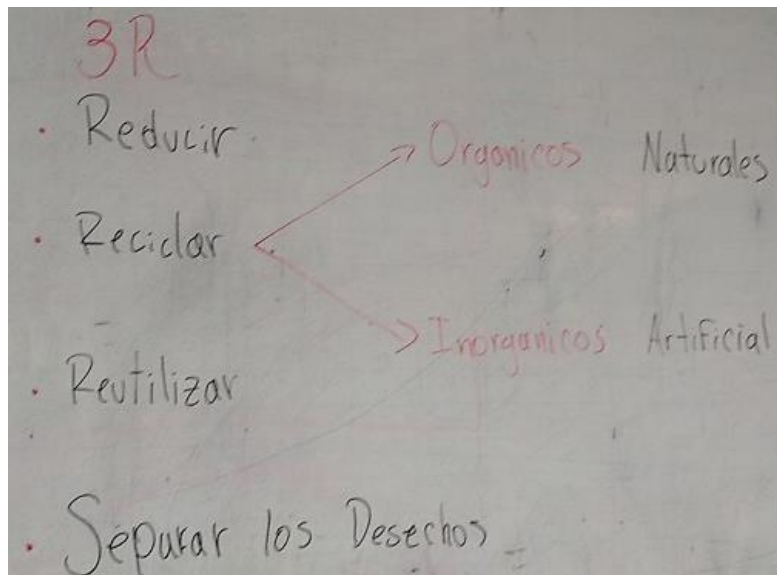 3R
· Reducir
Organicos Naturales
· Reciclar
Inorganicos Artificial
· Reutilizar
· Separar los Desechos